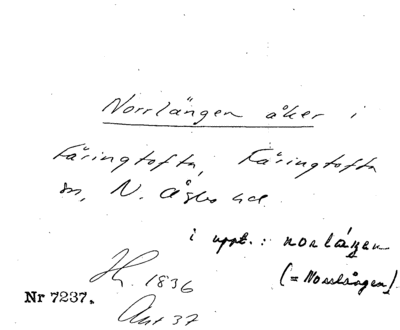 Norrlängen åker i
Fåringtofta, Fåringtofta
sn, N. Åsbo hd.
i uppt.: norlángen
(= Norrlången).
Jh. 1836
Nr 7237.
Ant 37